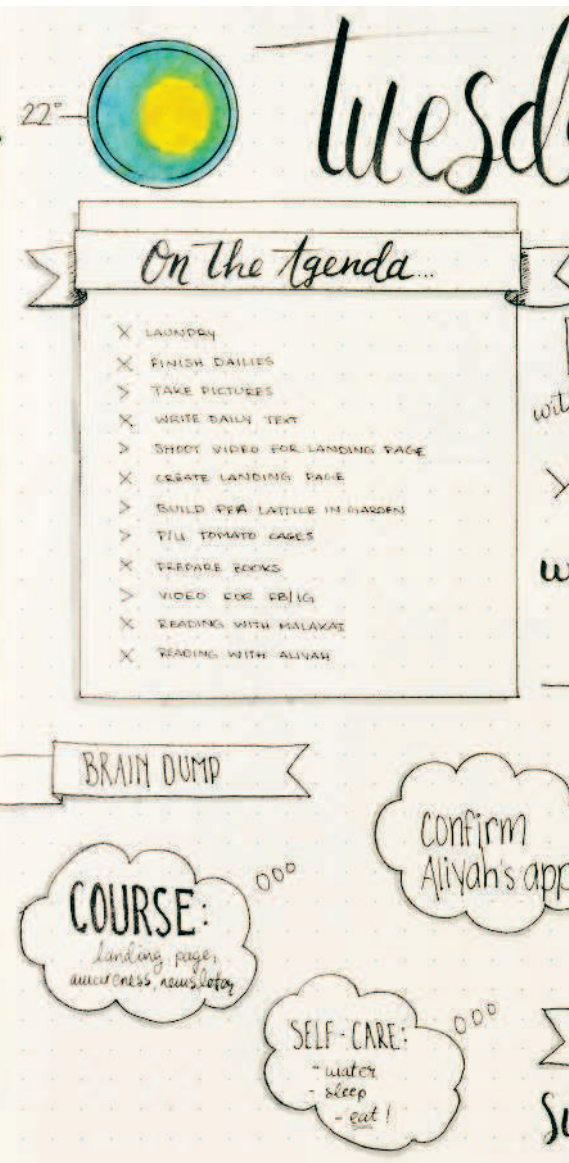 22°
Tuesd
On the Agenda...
X LAUNDRY
X FINISH DAILIES
> TAKE PICTURES
X WRITE DAILY TEXT
> SHOOT VIDEO FOR LANDING PAGE
X CREATE LANDING PAGE
> BUILD PEA LATTICE IN GARDEN
> P/U TOMATO CAGES
X PREPARE BOOKS
> VIDEO FOR FB/IG
X READING WITH MALAKAI
X READING WITH ALIYAH
wit
w
BRAIN DUMP
Confirm
Aliyah's app
COURSE:
landing page,
awareness, newsletter
SELF-CARE:
- water
- sleep
- eat!
Su